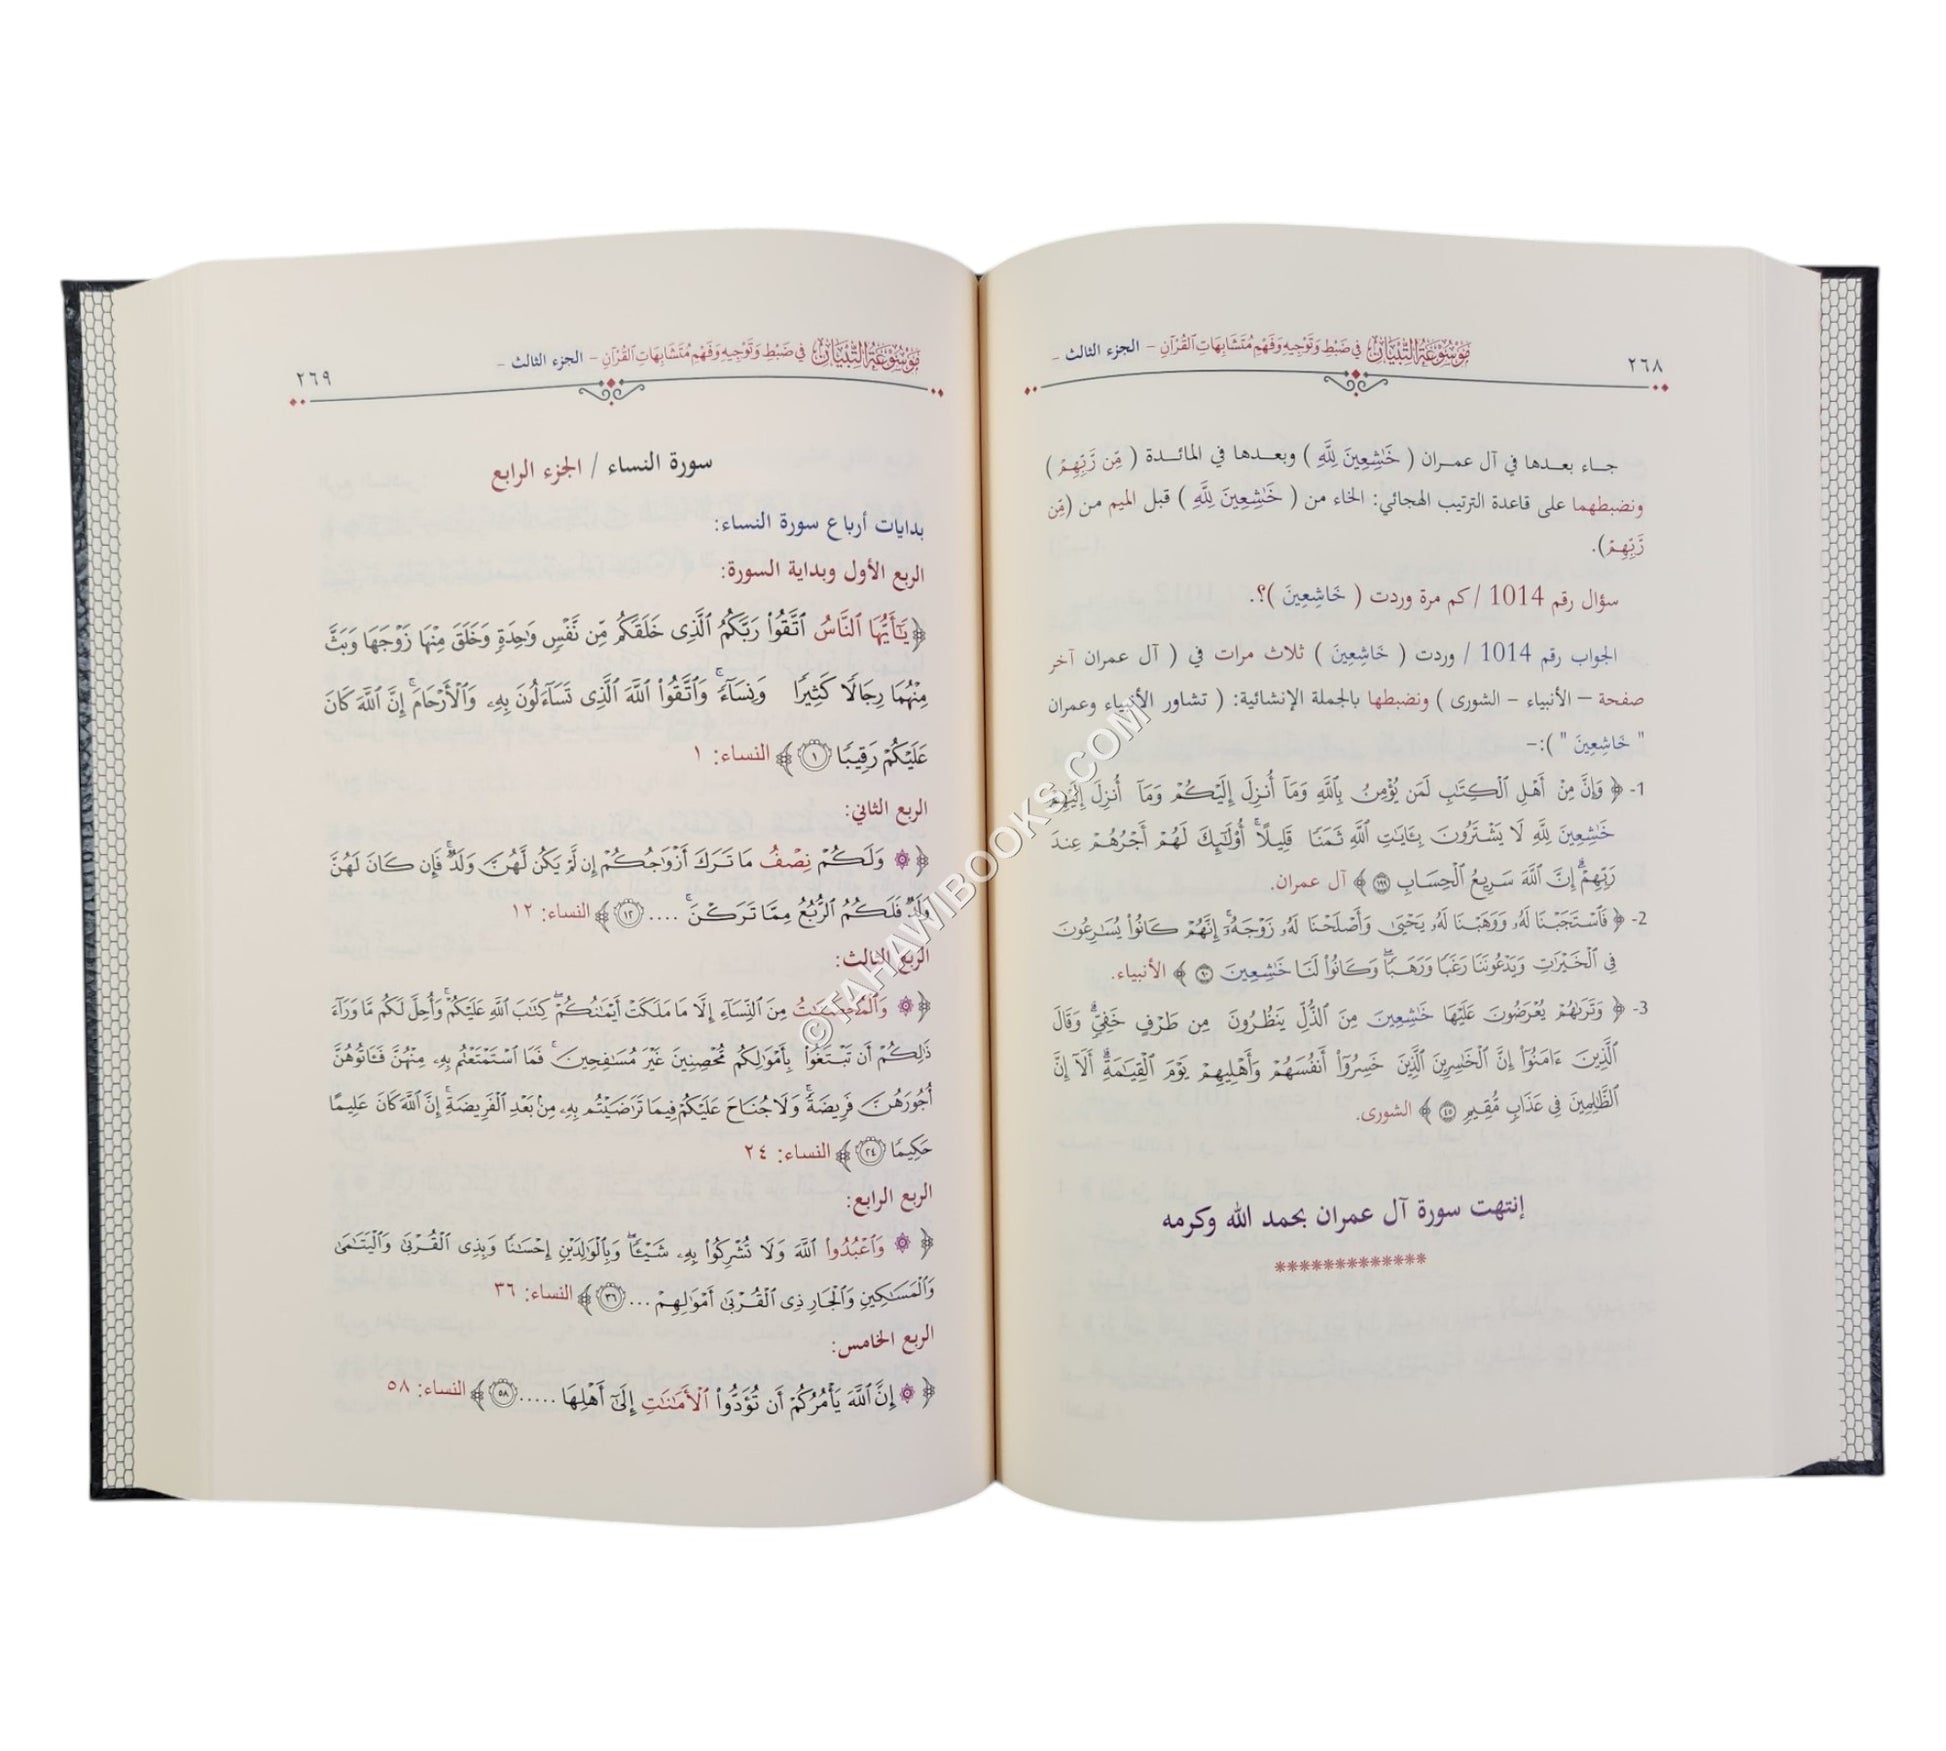 ٢٦٨
موسوعة التبيان في ضبط وتوجيه وفهم متشابهات القرآن – الجزء الثالث –
جاء بعدها في آل عمران ( خَٰشِعِينَ لِلَّهِ ) وبعدها في المائدة ( مِّن رَّبِّهِمۡ )
ونضبطهما على قاعدة الترتيب الهجائي: الخاء من ( خَٰشِعِينَ لِلَّهِ ) قبل الميم من (مِّن
رَّبِّهِمۡ).
سؤال رقم 1014 / كم مرة وردت ( خَاشِعِينَ )؟.
الجواب رقم 1014 / وردت ( خَاشِعِينَ ) ثلاث مرات في ( آل عمران آخر
صفحة – الأنبياء – الشورى ) ونضبطها بالجملة الإنشائية: ( تشاور الأنبياء وعمران
" خَاشِعِينَ " ):–
1- ﴿ وَإِنَّ مِنۡ أَهۡلِ ٱلۡكِتَٰبِ لَمَن يُؤۡمِنُ بِٱللَّهِ وَمَآ أُنزِلَ إِلَيۡكُمۡ وَمَآ أُنزِلَ إِلَيۡهِمۡ
خَٰشِعِينَ لِلَّهِ لَا يَشۡتَرُونَ بِـَٔايَٰتِ ٱللَّهِ ثَمَنٗا قَلِيلًاۚ أُوْلَٰٓئِكَ لَهُمۡ أَجۡرُهُمۡ عِندَ
رَبِّهِمۡۗ إِنَّ ٱللَّهَ سَرِيعُ ٱلۡحِسَابِ ١٩٩ ﴾ آل عمران.
2- ﴿ فَٱسۡتَجَبۡنَا لَهُۥ وَوَهَبۡنَا لَهُۥ يَحۡيَىٰ وَأَصۡلَحۡنَا لَهُۥ زَوۡجَهُۥٓۚ إِنَّهُمۡ كَانُواْ يُسَٰرِعُونَ
فِي ٱلۡخَيۡرَٰتِ وَيَدۡعُونَنَا رَغَبٗا وَرَهَبٗاۖ وَكَانُواْ لَنَا خَٰشِعِينَ ٩٠ ﴾ الأنبياء.
3- ﴿ وَتَرَىٰهُمۡ يُعۡرَضُونَ عَلَيۡهَا خَٰشِعِينَ مِنَ ٱلذُّلِّ يَنظُرُونَ مِن طَرۡفٍ خَفِيّٖۗ وَقَالَ
ٱلَّذِينَ ءَامَنُوٓاْ إِنَّ ٱلۡخَٰسِرِينَ ٱلَّذِينَ خَسِرُوٓاْ أَنفُسَهُمۡ وَأَهۡلِيهِمۡ يَوۡمَ ٱلۡقِيَٰمَةِۗ أَلَآ إِنَّ
ٱلظَّٰلِمِينَ فِي عَذَابٖ مُّقِيمٖ ٤٥ ﴾ الشورى.
إنتهت سورة آل عمران بحمد الله وكرمه
*************
موسوعة التبيان في ضبط وتوجيه وفهم متشابهات القرآن – الجزء الثالث –
٢٦٩
سورة النساء / الجزء الرابع
بدايات أرباع سورة النساء:
الربع الأول وبداية السورة:
﴿ يَٰٓأَيُّهَا ٱلنَّاسُ ٱتَّقُواْ رَبَّكُمُ ٱلَّذِي خَلَقَكُم مِّن نَّفۡسٖ وَٰحِدَةٖ وَخَلَقَ مِنۡهَا زَوۡجَهَا وَبَثَّ
مِنۡهُمَا رِجَالٗا كَثِيرٗا وَنِسَآءٗۚ وَٱتَّقُواْ ٱللَّهَ ٱلَّذِي تَسَآءَلُونَ بِهِۦ وَٱلۡأَرۡحَامَۚ إِنَّ ٱللَّهَ كَانَ
عَلَيۡكُمۡ رَقِيبٗا ١ ﴾ النساء: ١
الربع الثاني:
﴿ ۞ وَلَكُمۡ نِصۡفُ مَا تَرَكَ أَزۡوَٰجُكُمۡ إِن لَّمۡ يَكُن لَّهُنَّ وَلَدٞۚ فَإِن كَانَ لَهُنَّ
وَلَدٞ فَلَكُمُ ٱلرُّبُعُ مِمَّا تَرَكۡنَۚ .... ١٢ ﴾ النساء: ١٢
الربع الثالث:
﴿ ۞ وَٱلۡمُحۡصَنَٰتُ مِنَ ٱلنِّسَآءِ إِلَّا مَا مَلَكَتۡ أَيۡمَٰنُكُمۡۖ كِتَٰبَ ٱللَّهِ عَلَيۡكُمۡۚ وَأُحِلَّ لَكُم مَّا وَرَآءَ
ذَٰلِكُمۡ أَن تَبۡتَغُواْ بِأَمۡوَٰلِكُم مُّحۡصِنِينَ غَيۡرَ مُسَٰفِحِينَۚ فَمَا ٱسۡتَمۡتَعۡتُم بِهِۦ مِنۡهُنَّ فَـَٔاتُوهُنَّ
أُجُورَهُنَّ فَرِيضَةٗۚ وَلَا جُنَاحَ عَلَيۡكُمۡ فِيمَا تَرَٰضَيۡتُم بِهِۦ مِنۢ بَعۡدِ ٱلۡفَرِيضَةِۚ إِنَّ ٱللَّهَ كَانَ عَلِيمًا
حَكِيمٗا ٢٤ ﴾ النساء: ٢٤
الربع الرابع:
﴿ ۞ وَٱعۡبُدُواْ ٱللَّهَ وَلَا تُشۡرِكُواْ بِهِۦ شَيۡـٔٗاۖ وَبِٱلۡوَٰلِدَيۡنِ إِحۡسَٰنٗا وَبِذِي ٱلۡقُرۡبَىٰ وَٱلۡيَتَٰمَىٰ
وَٱلۡمَسَٰكِينِ وَٱلۡجَارِ ذِي ٱلۡقُرۡبَىٰ أَمۡوَٰلِهِمۡ ... ٣٦ ﴾ النساء: ٣٦
الربع الخامس:
﴿ ۞ إِنَّ ٱللَّهَ يَأۡمُرُكُمۡ أَن تُؤَدُّواْ ٱلۡأَمَٰنَٰتِ إِلَىٰٓ أَهۡلِهَا ..... ٥٨ ﴾ النساء: ٥٨
©TAHAWIBOOKS.COM